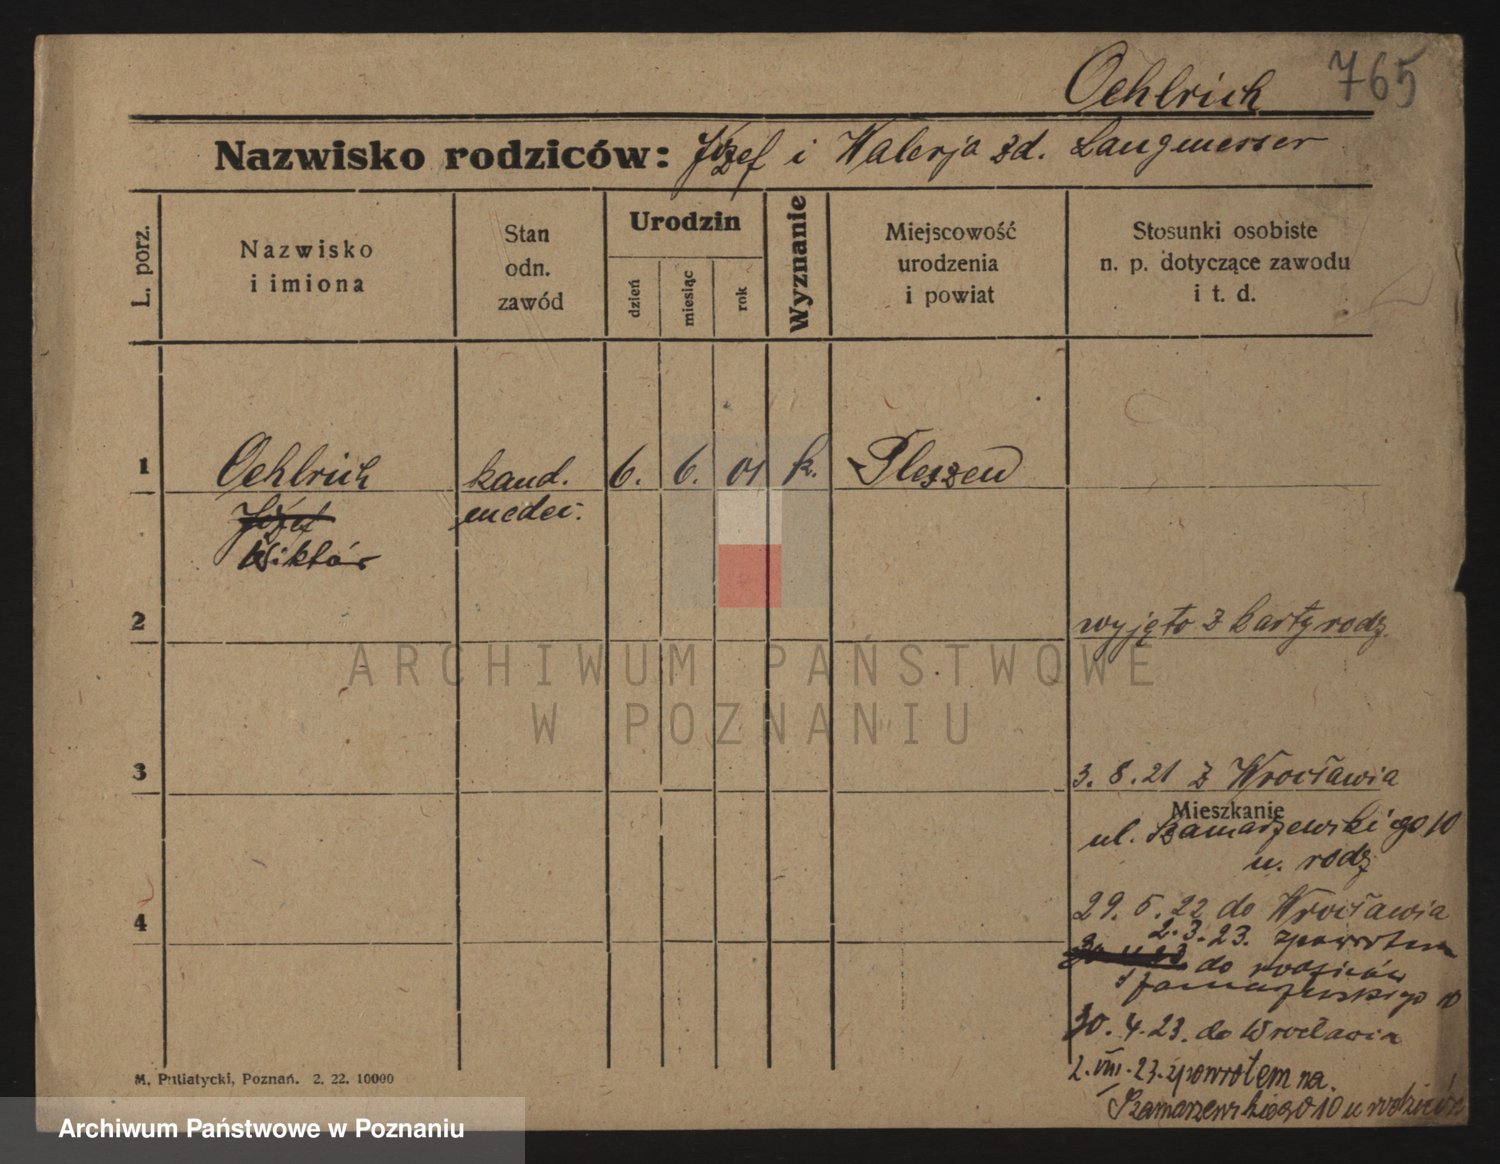 Oehlrich 765
Nazwisko rodziców: Józef i Walerja zd. Langmesser
L. porz.
Nazwisko
i imiona
Stan
odn.
zawód
Urodzin
dzień
miesiąc
rok
Wyznanie
Miejscowość
urodzenia
i powiat
Stosunki osobiste
n. p. dotyczące zawodu
i t. d.
1 Oehlrich kand. 6. 6. 01 k. Pleszew
Józef medci.
Wiktór
2 wyjęto z karty rodz.
ARCHIWUM PAŃSTWOWE
W POZNANIU
3 3. 8. 21 z Wrocławia
Mieszkanie
ul. Szamarzewskiego 10
u. rodz
29. 5. 22 do Wrocławia
4 2. 3. 23. zpowrotem
30 4 23 do rodziców
Szamarzewskiego 10
30. 4. 23. do Wrocławia
2. VIII. 23. zpowrotem na.
Szamarzewskiego 10 u rodziców
M. Putiatycki, Poznań. 2. 22. 10000
Archiwum Państwowe w Poznaniu